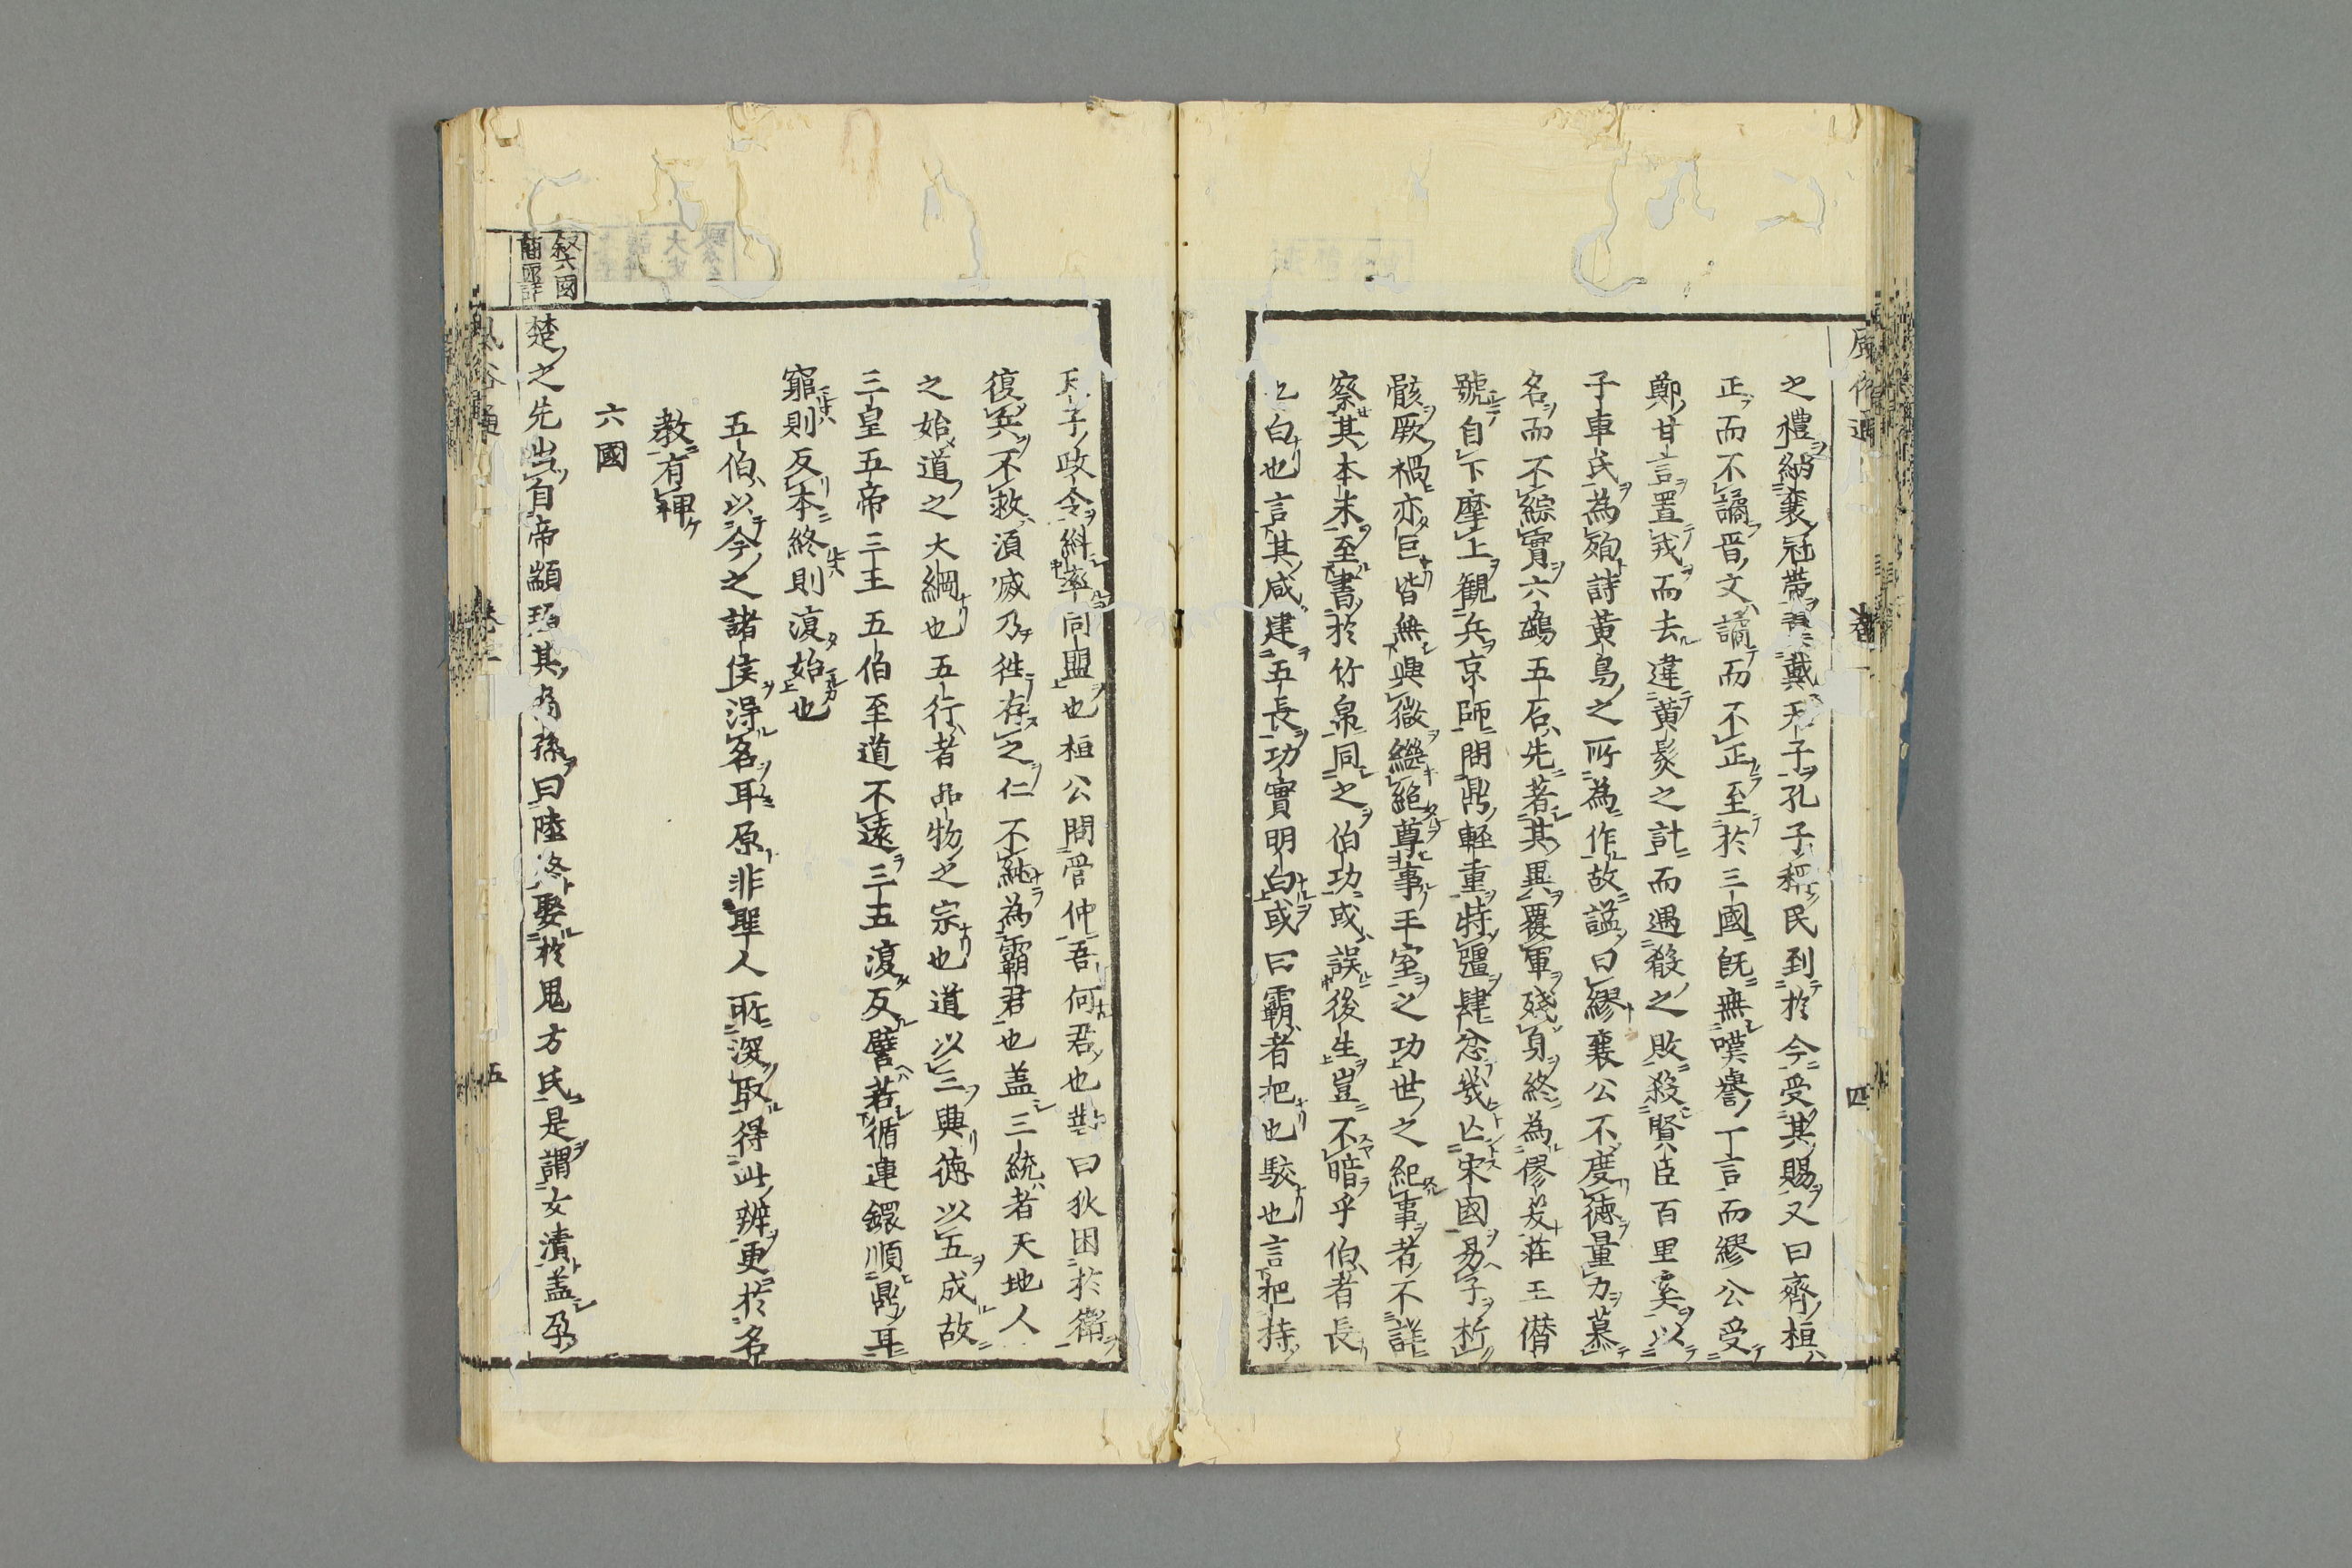 之禮納襄冠帶翼戴天子孔子稱民到於今受其賜又曰齊桓
正而不譎晉文譎而不正至於三國既無嘆譽一言而繆公受
鄭甘言置戎而去違黃髮之計而遇殽之敗殺賢臣百里奚以
子車氏為殉詩黃鳥之所為作故謚曰繆襄公不度德量力慕
名而不綜實六鷁五石先著其異覆軍殘身終為僇笑莊王僭
號自下摩上觀兵京師問鼎輕重恃彊肆忿幾亾宋國易子析
骸厥禍亦巨皆無興微繼絕尊事王室之功世之紀事者不詳
察其本末至書於竹帛同之伯功或誤後生豈不暗乎伯者長
也白也言其咸建五長功實明白或曰霸者把也駮也言把持
天子政令糾率同盟也桓公問管仲吾何君也對曰狄困於衛
復兵不救湏滅乃徃存之仁不純為霸君也盖三統者天地人
之始道之大綱也五行者品物之宗也道以三興德以五成故
三皇五帝三王五伯至道不遠三五復反譬若循連鐶順鼎耳
窮則反本終則復始也
五伯以今之諸侯得名耳原非聖人所深取得此辨更於名
教有裨
六國
叙六國
簡而詳
楚之先出自帝顓頊其裔孫曰陸終娶於鬼方氏是謂女潰盖孕